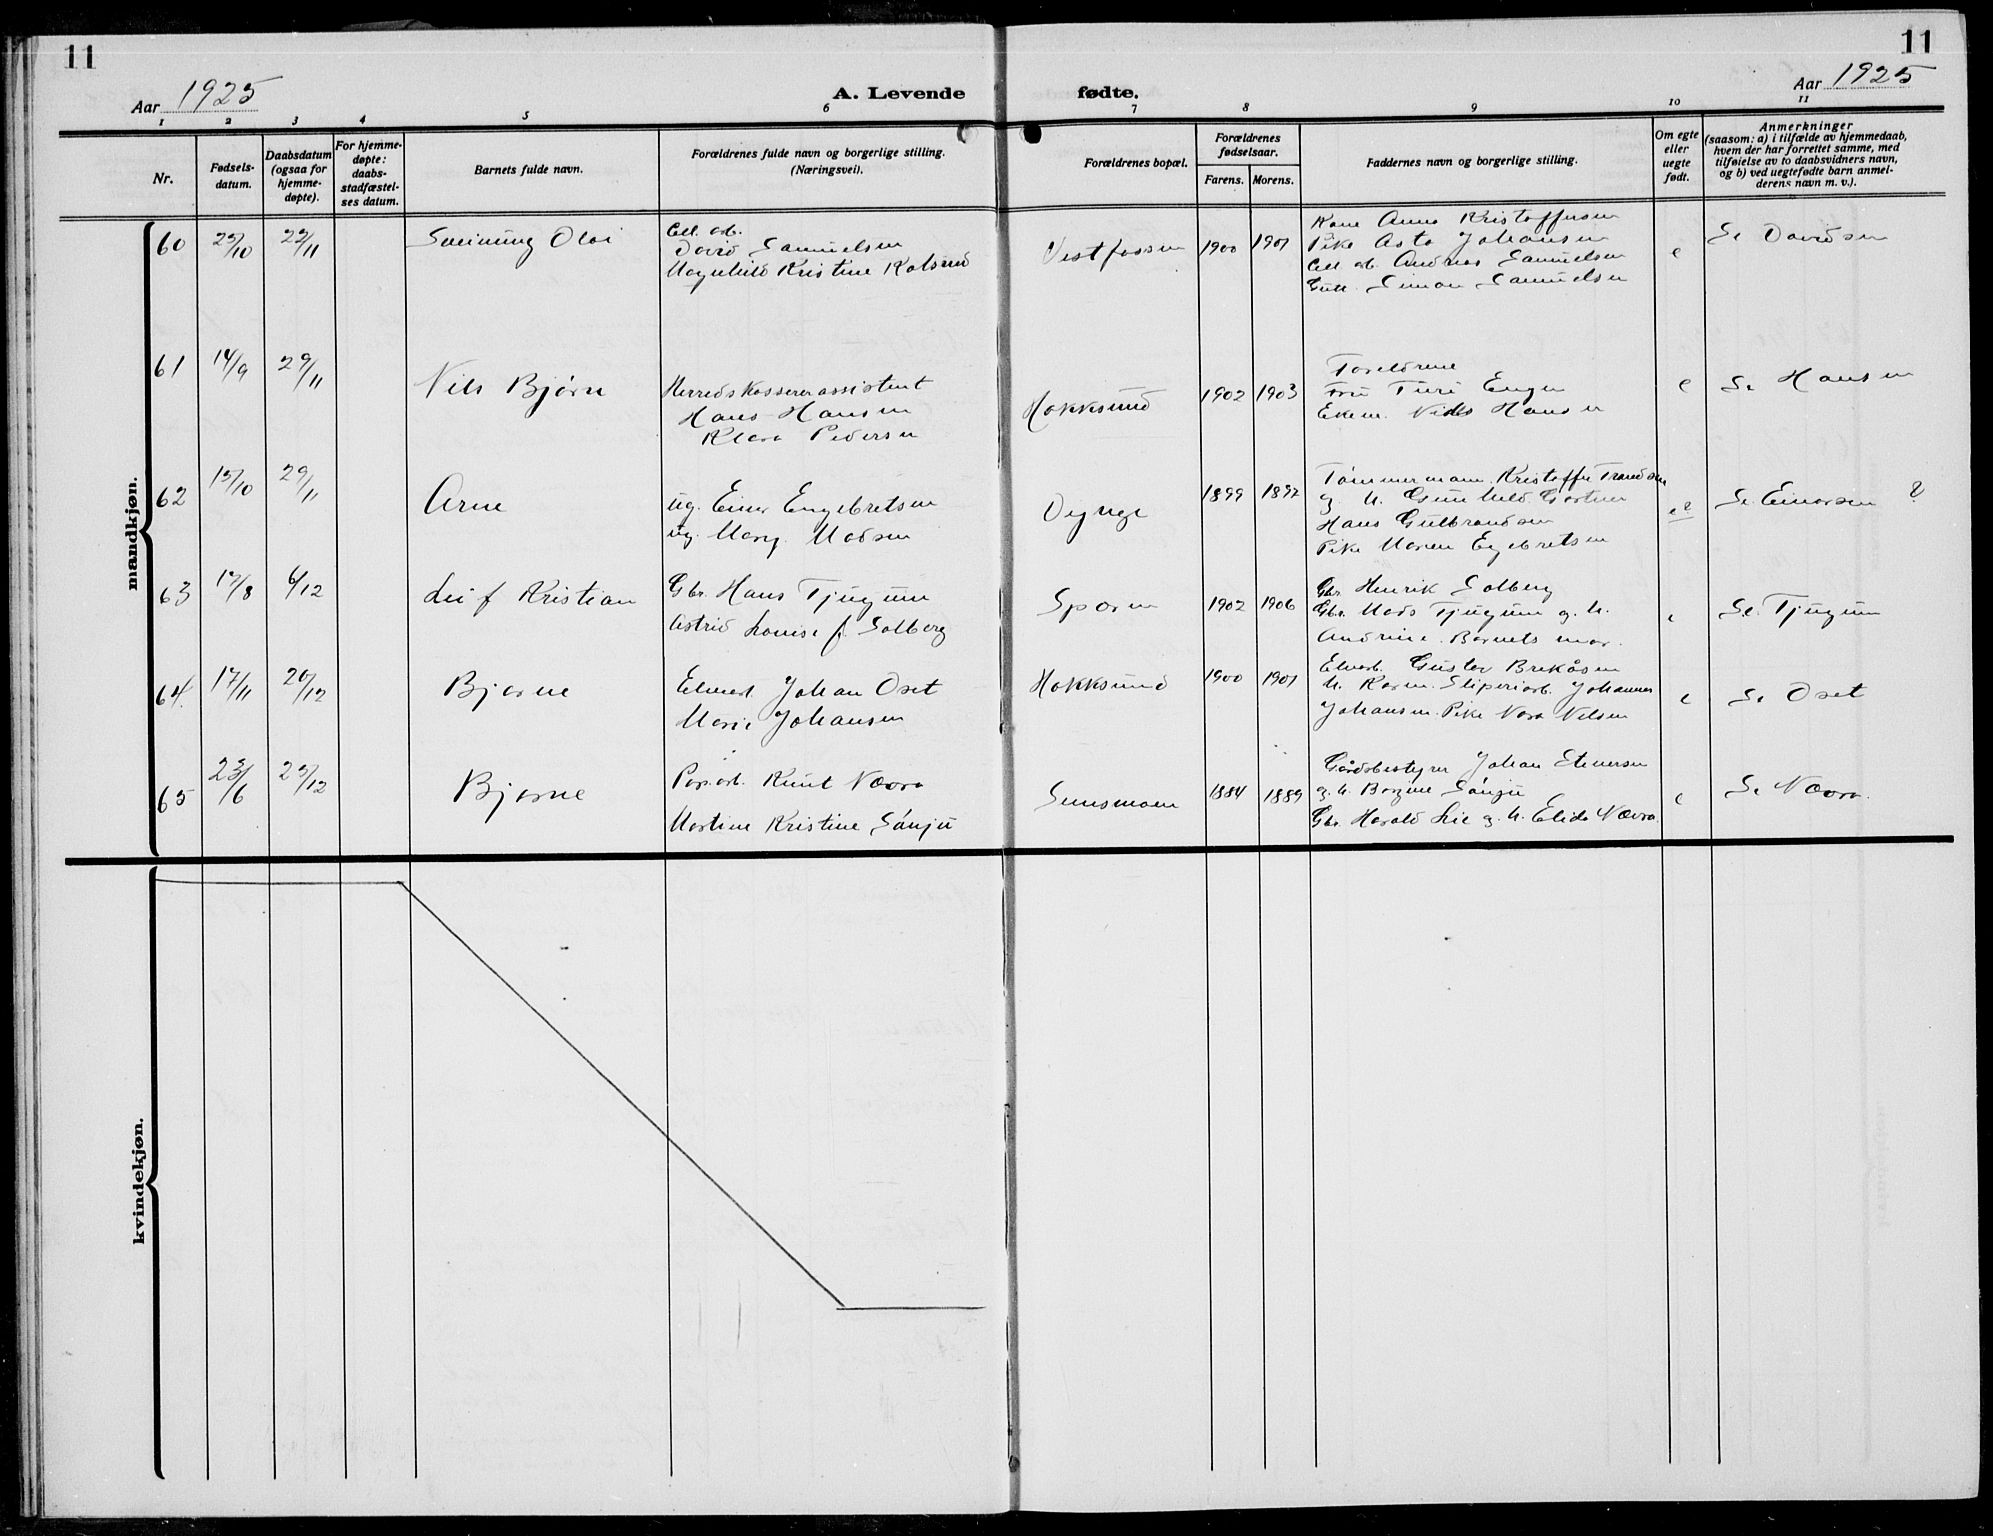 11
11
Aar 1925
A. Levende
fødte.
Aar 1925
1 2 3 4 5 6 7 8 9 10 11
Nr.
Fødsels-
datum.
Daabsdatum
(ogsaa for
hjemme-
døpte).
For hjemme-
døpte:
daabs-
stadfæstel-
ses datum.
Barnets fulde navn.
Forældrenes fulde navn og borgerlige stilling.
(Næringsvei).
Forældrenes bopæl.
Forældrenes
fødselsaar.
Farens. Morens.
Faddernes navn og borgerlige stilling.
Om egte
eller
uegte
født.
Anmerkninger
(saasom: a) i tilfælde av hjemmedaab,
hvem der har forrettet samme, med
tilføielse av to daabsvidners navn,
og b) ved uegtefødte barn anmel-
derens navn m. v.).
mandkjøn.
60 25/10 22/11 Olai
Cell. arb.
David Samuelsen
Magnhild Kristine Kolsrud
Vestfossen 1900 1901
Kone Anna Kristoffersen
Pike Asta Johansen
Cell. arb. Andreas Samuelsen
Gutt. Simon Samuelsen
e
Se Davidsen
61 14/9 29/11 Nils Bjørn
Herredskassererassistent
Hans Hansen
Klara Pedersen
Hokksund 1902 1903
Foreldrene
Fru Turi Enger
Ekem. Nils Hansen
e
Se Hansen
62 15/10 29/11 Arne
ug. Einar Engebretsen
ug. Marg. Madsen
Dynge 1899 1892
Tømmermann Kristoffer Trondsen
g. h. Gunhild Gartner
Hans Gulbrandsen
Pike Maren Egebretsen
e?
Se Einarsen ?
63 17/8 6/12 Leif Kristian
Gbr. Hans Tjugum
Astrid Louise f. Solberg
Sporn 1902 1906
Gbr. Henrik Solberg
Gbr. Mads Tjugum g. h.
Andrine. Barnets mor.
e
Se Tjugum
64. 17/11 20/12 Bjarne
Johan Oset
Marie Johansen
Hokksund 1900 1901
Gustav Brekåsen
h. Karen. Sliperiarb. Johannes
Johansen. Pike Nora Nilsen
e
Se Oset
65 23/6 25/12 Bjarne
Pap.arb. Knut Nævra
Martine Kristine Sånju
Semsmoen 1884 1889
Gårdsbestyrer Johan Stenersen
g. h. Borgine Sånju
Gbr. Harald Lie g. h. Elida Nævra.
e
Se Nævra.
kvindekjøn.